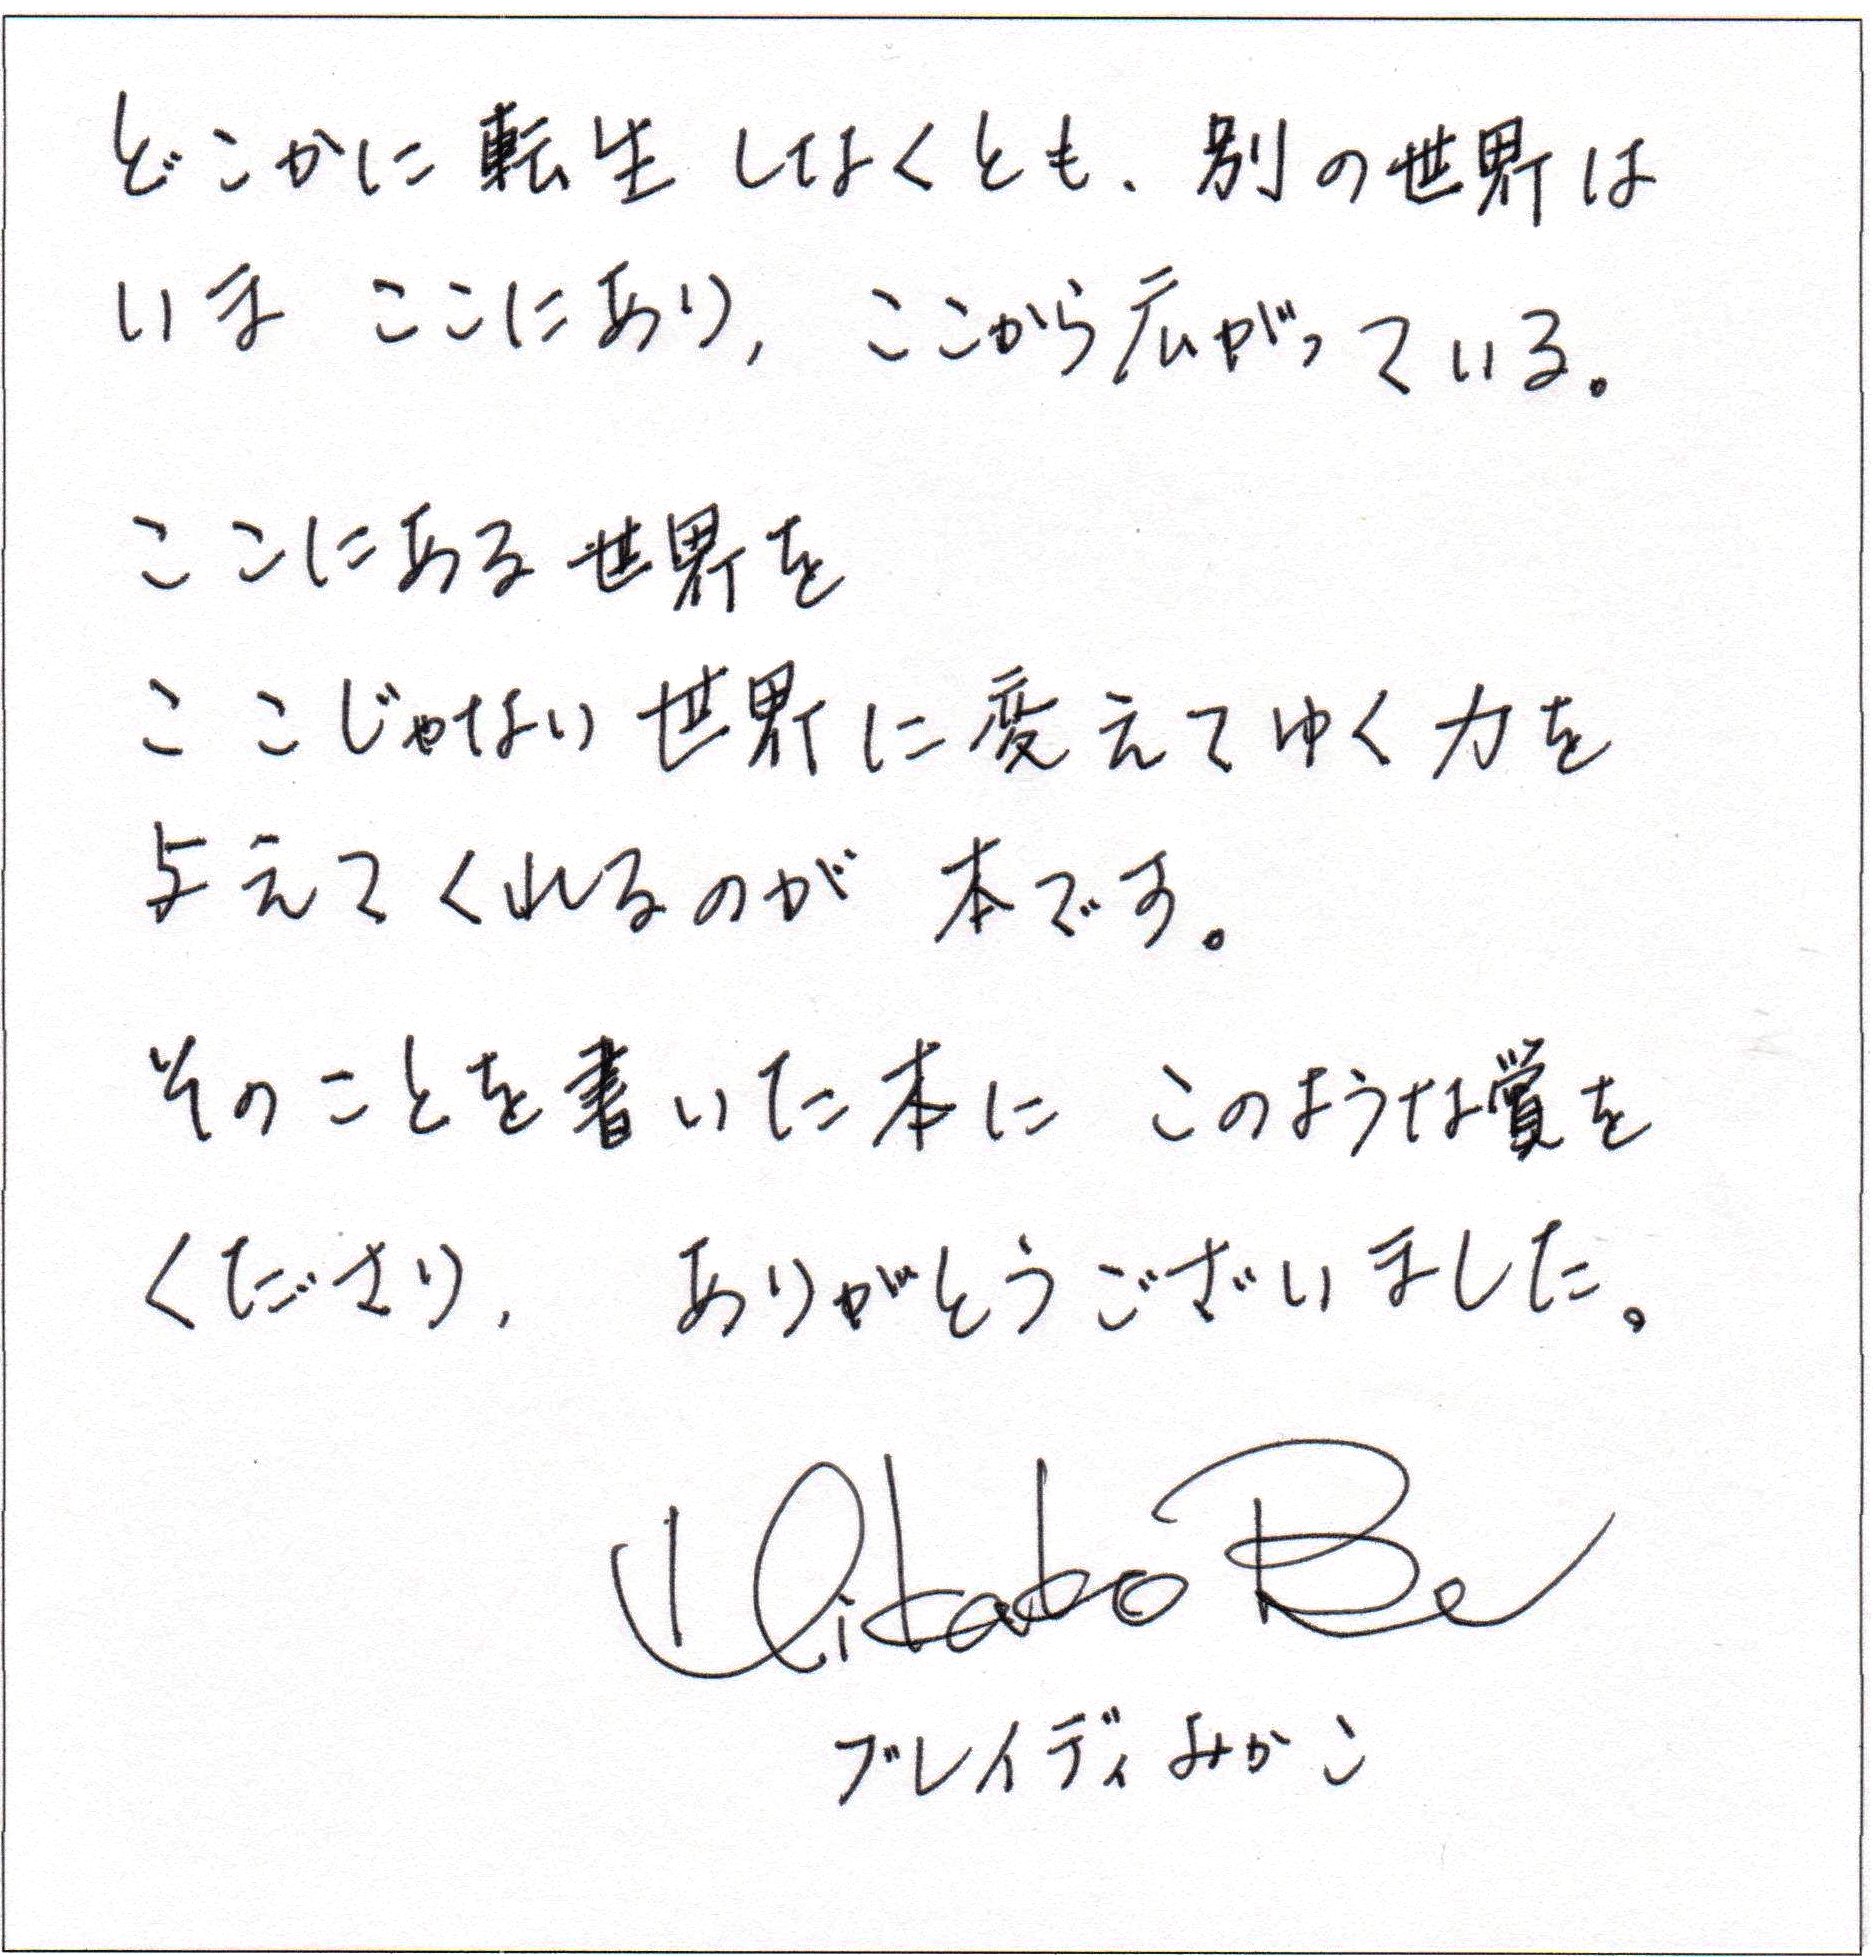 どこかに転生しなくとも、別の世界は
いま ここにあり、ここから広がっている。
ここにある世界を
ここじゃない世界に変えてゆく力を
与えてくれるのが 本です。
そのことを書いた本に このような賞を
くださり、 ありがとうございました。
Mikako B
ブレイディみかこ